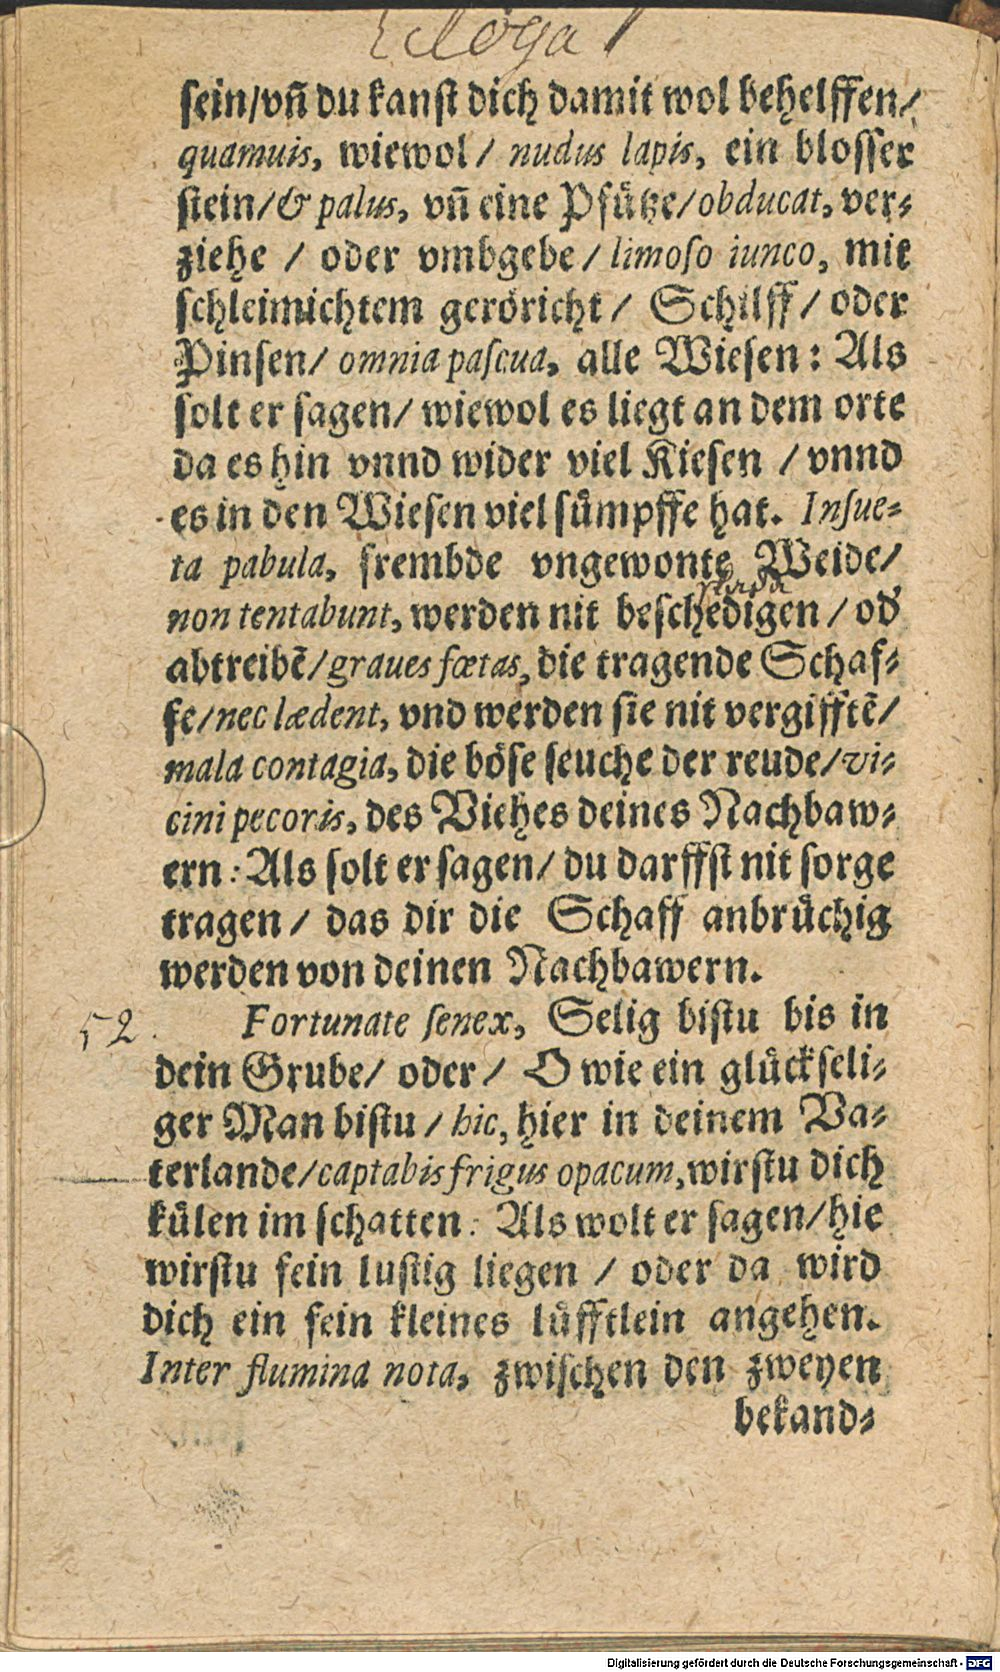 Ecloga 1
sein/vn̄ du kanst dich damit wol behelffen/
quamuis, wiewol/ nudus lapis, ein blosser
stein/& palus, vn̄ eine Pfuͤtze/obducat, ver⸗
ziehe / oder vmbgebe/ limoso iunco, mit
schleimichtem geroͤricht/ Schilff/ oder
Pinsen/ omnia pascua, alle Wiesen: Als
solt er sagen/ wiewol es liegt an dem orte
da es hin vnnd wider viel Kiesen /vnnd
es in den Wiesen viel suͤmpffe hat. Insue⸗
ta pabula, frembde vngewonte Weide/
non tentabunt, werden nit beschedigen/ od'
abtreibẽ/graues fœtas, die tragende Schaf⸗
fe/nec lædent, vnd werden sie nit vergifftẽ/
mala contagia, die boͤse seuche der reude/vi⸗
cini pecoris, des Viehes deines Nachbaw⸗
ern: Als solt er sagen/ du darffst nit sorge
tragen/ das dir die Schaff anbruͤchig
werden von deinen Nachbawern.
52.
Fortunate senex, Selig bistu bis in
dein Grube/ oder/ O wie ein gluͤckseli⸗
ger Man bistu /hic, hier in deinem Va⸗
terlande/captabis frigus opacum, wirstu dich
kuͤlen im schatten: Als wolt er sagen/hie
wirstu fein lustig liegen / oder da wird
dich ein fein kleines luͤfftlein angehen.
Inter flumina nota, zwischen den zweyen
bekand⸗
Digitalisierung gefördert durch die Deutsche Forschungsgemeinschaft - DFG